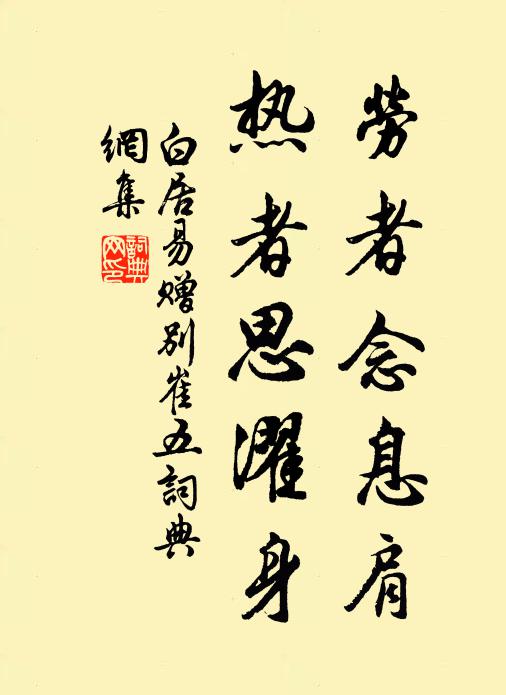 勞者念息肩
热者思濯身
白居易贈別崔五詞典
網集
詞典
网印